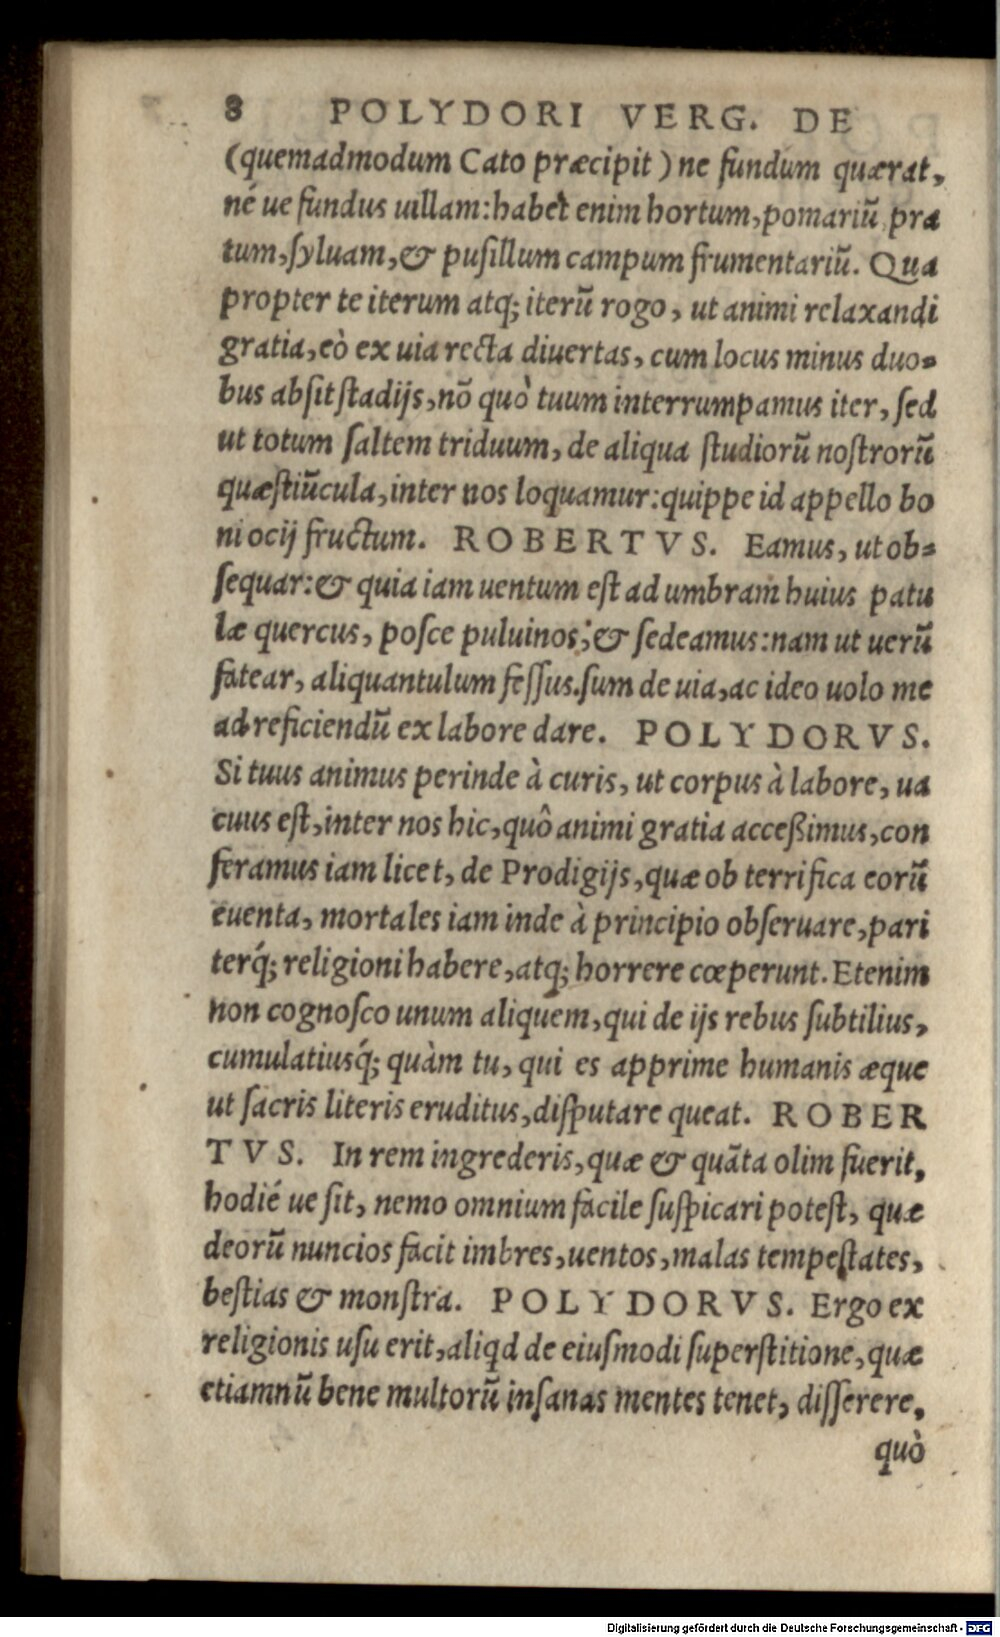 8 POLYDORI VERG. DE
(quemadmodum Cato præcipit) ne fundum quærat,
né ue fundus uillam: habet enim hortum, pomariũ pra
tum, ſyluam, & puſillum campum frumentariũ. Qua
propter te iterum atq; iterũ rogo, ut animi relaxandi
gratia, eò ex uia recta diuertas, cum locus minus duo-
bus abſit ſtadijs, nõ quò tuum interrumpamus iter, ſed
ut totum ſaltem triduum, de aliqua ſtudiorũ noſtrorũ
quæſtiũcula, inter nos loquamur: quippe id appello bo
ni ocij fructum. ROBERTVS. Eamus, ut ob-
ſequar: & quia iam uentum eſt ad umbram huius patu
læ quercus, poſce puluinos, & ſedeamus: nam ut uerũ
fatear, aliquantulum feſſus.ſum de uia, ac ideo uolo me
ad reficiendũ ex labore dare. POLYDORVS.
Si tuus animus perinde à curis, ut corpus à labore, ua
cuus eſt, inter nos hic, quô animi gratia acceßimus, con
feramus iam licet, de Prodigijs, quæ ob terrifica eorũ
euenta, mortales iam inde à principio obſeruare, pari
terq́; religioni habere, atq; horrere cœperunt. Etenim
non cognoſco unum aliquem, qui de ijs rebus ſubtilius,
cumulatiusq́; quàm tu, qui es apprime humanis æque
ut ſacris literis eruditus, diſputare queat. ROBER
TVS. In rem ingrederis, quæ & quãta olim fuerit,
hodié ue ſit, nemo omnium facile ſuſpicari poteſt, quæ
deorũ nuncios facit imbres, uentos, malas tempeſtates,
beſtias & monſtra. POLYDORVS. Ergo ex
religionis uſu erit, aliqd de eiuſmodi ſuperſtitione, quæ
etiamnũ bene multorũ inſanas mentes tenet, diſſerere,
quò
Digitalisierung gefördert durch die Deutsche Forschungsgemeinschaft - DFG